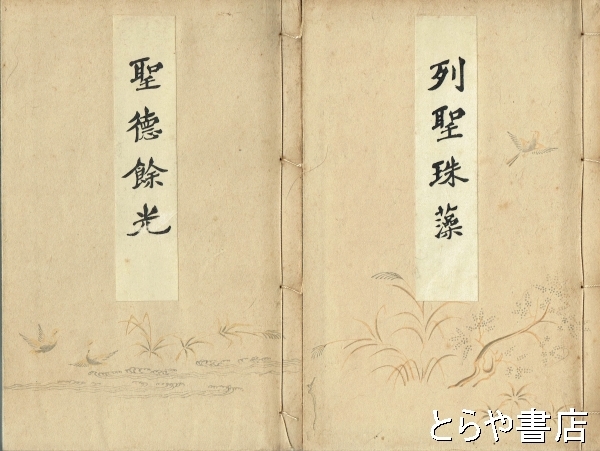 列聖珠藻
聖德餘光
とらや書店